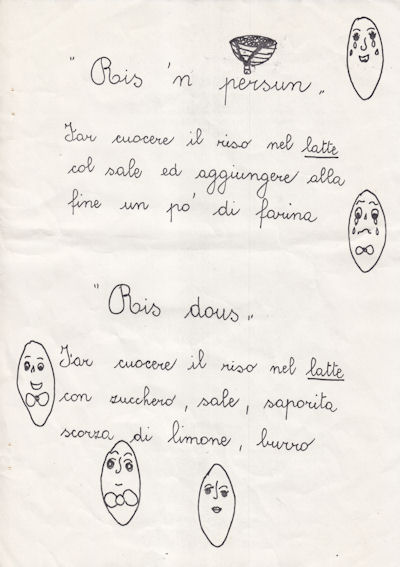 "Ris 'n persun"
Far cuocere il riso nel latte
col sale ed aggiungere alla
fine un po' di farina
"Ris dous"
Far cuocere il riso nel latte
con zucchero, sale, saporita
scorza di limone, burro